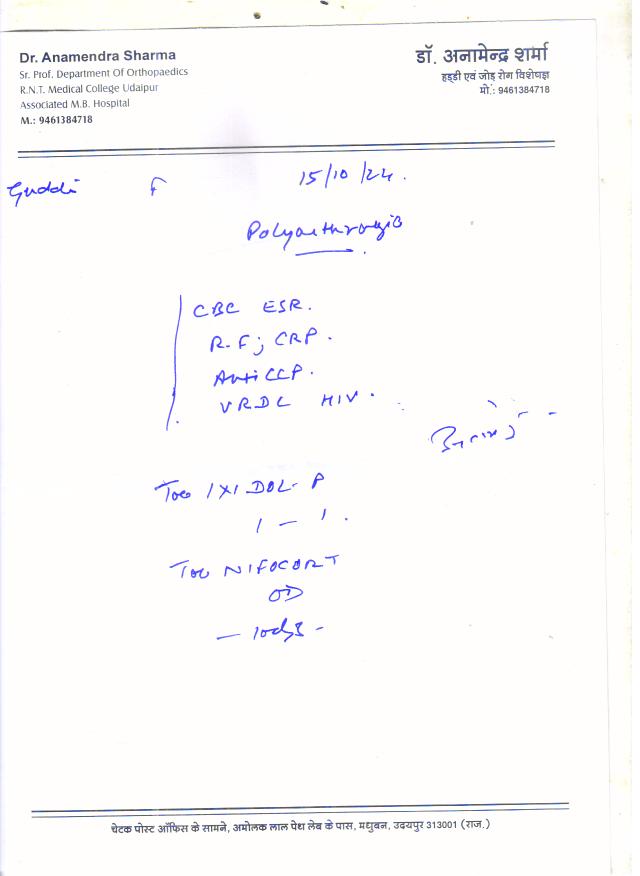 Dr. Anamendra Sharma
Sr. Prof. Department Of Orthopaedics
R.N.T. Medical College Udaipur
Associated M.B. Hospital
M.: 9461384718
डॉ. अनामेन्द्र शर्मा
हड्डी एवं जोड़ रोग विशेषज्ञ
मो.: 9461384718
Guddi F 15/10/24.
Polyarthralgia
CBC ESR.
R.F; CRP.
Anti CCP.
VRDL HIV.
Tab IXIDOL-P
1 - 1.
Tab NIFOCORT
OD
- 10days -
चेटक पोस्ट ऑफिस के सामने, अमोलक लाल पेथ लेब के पास, मधुबन, उदयपुर 313001 (राज.)